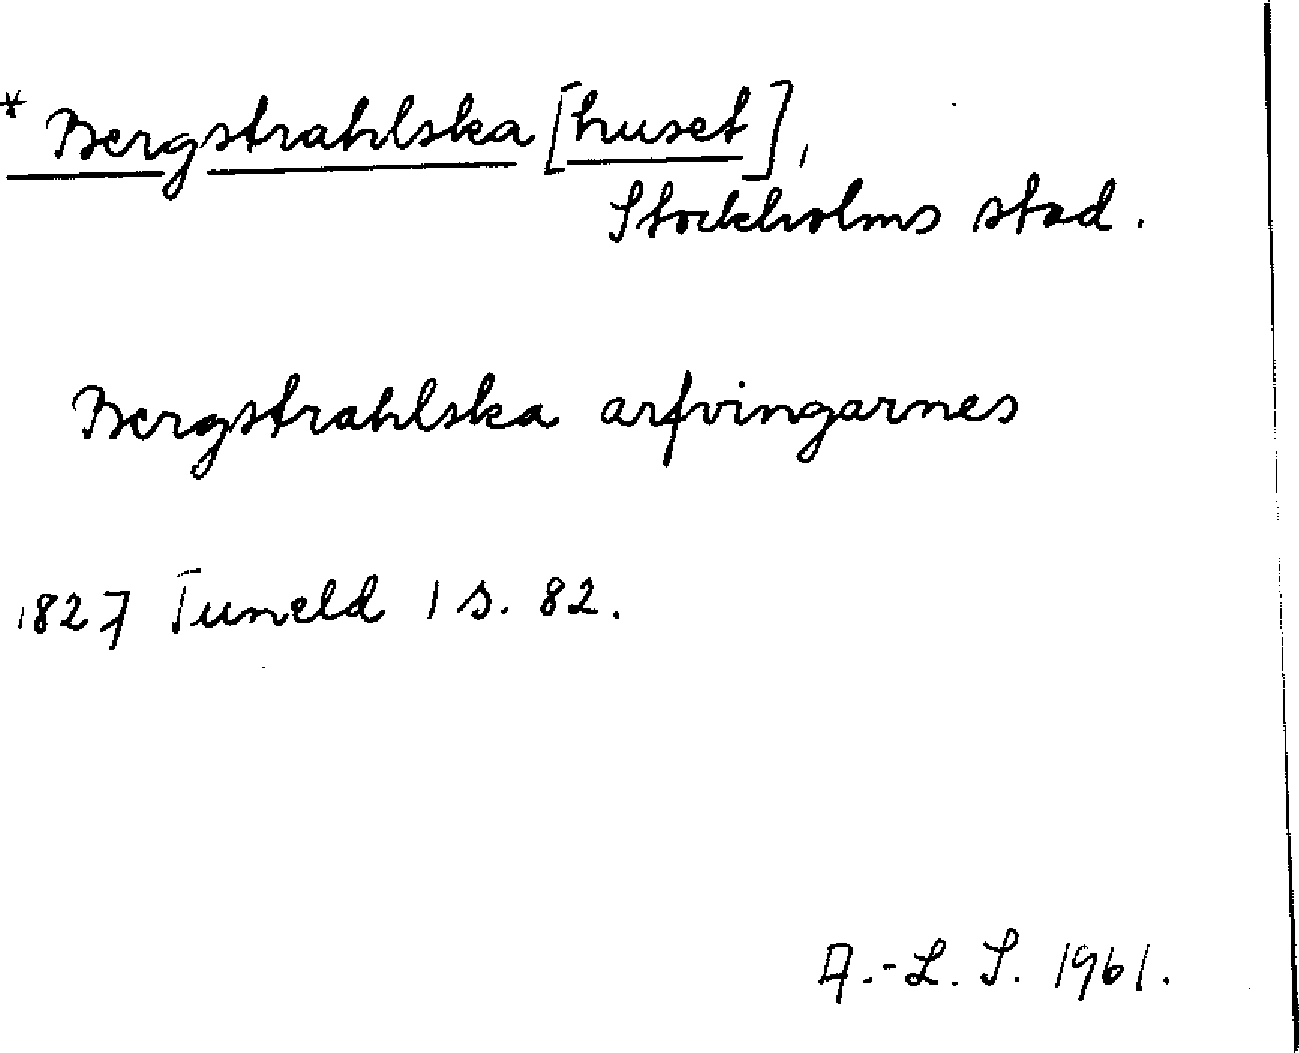 * Bergstrahlska [huset],
Stockholms stad.
Bergstrahlska arfvingarnes
1827 Tuneld 1 s. 82.
A.-L. S. 1961.